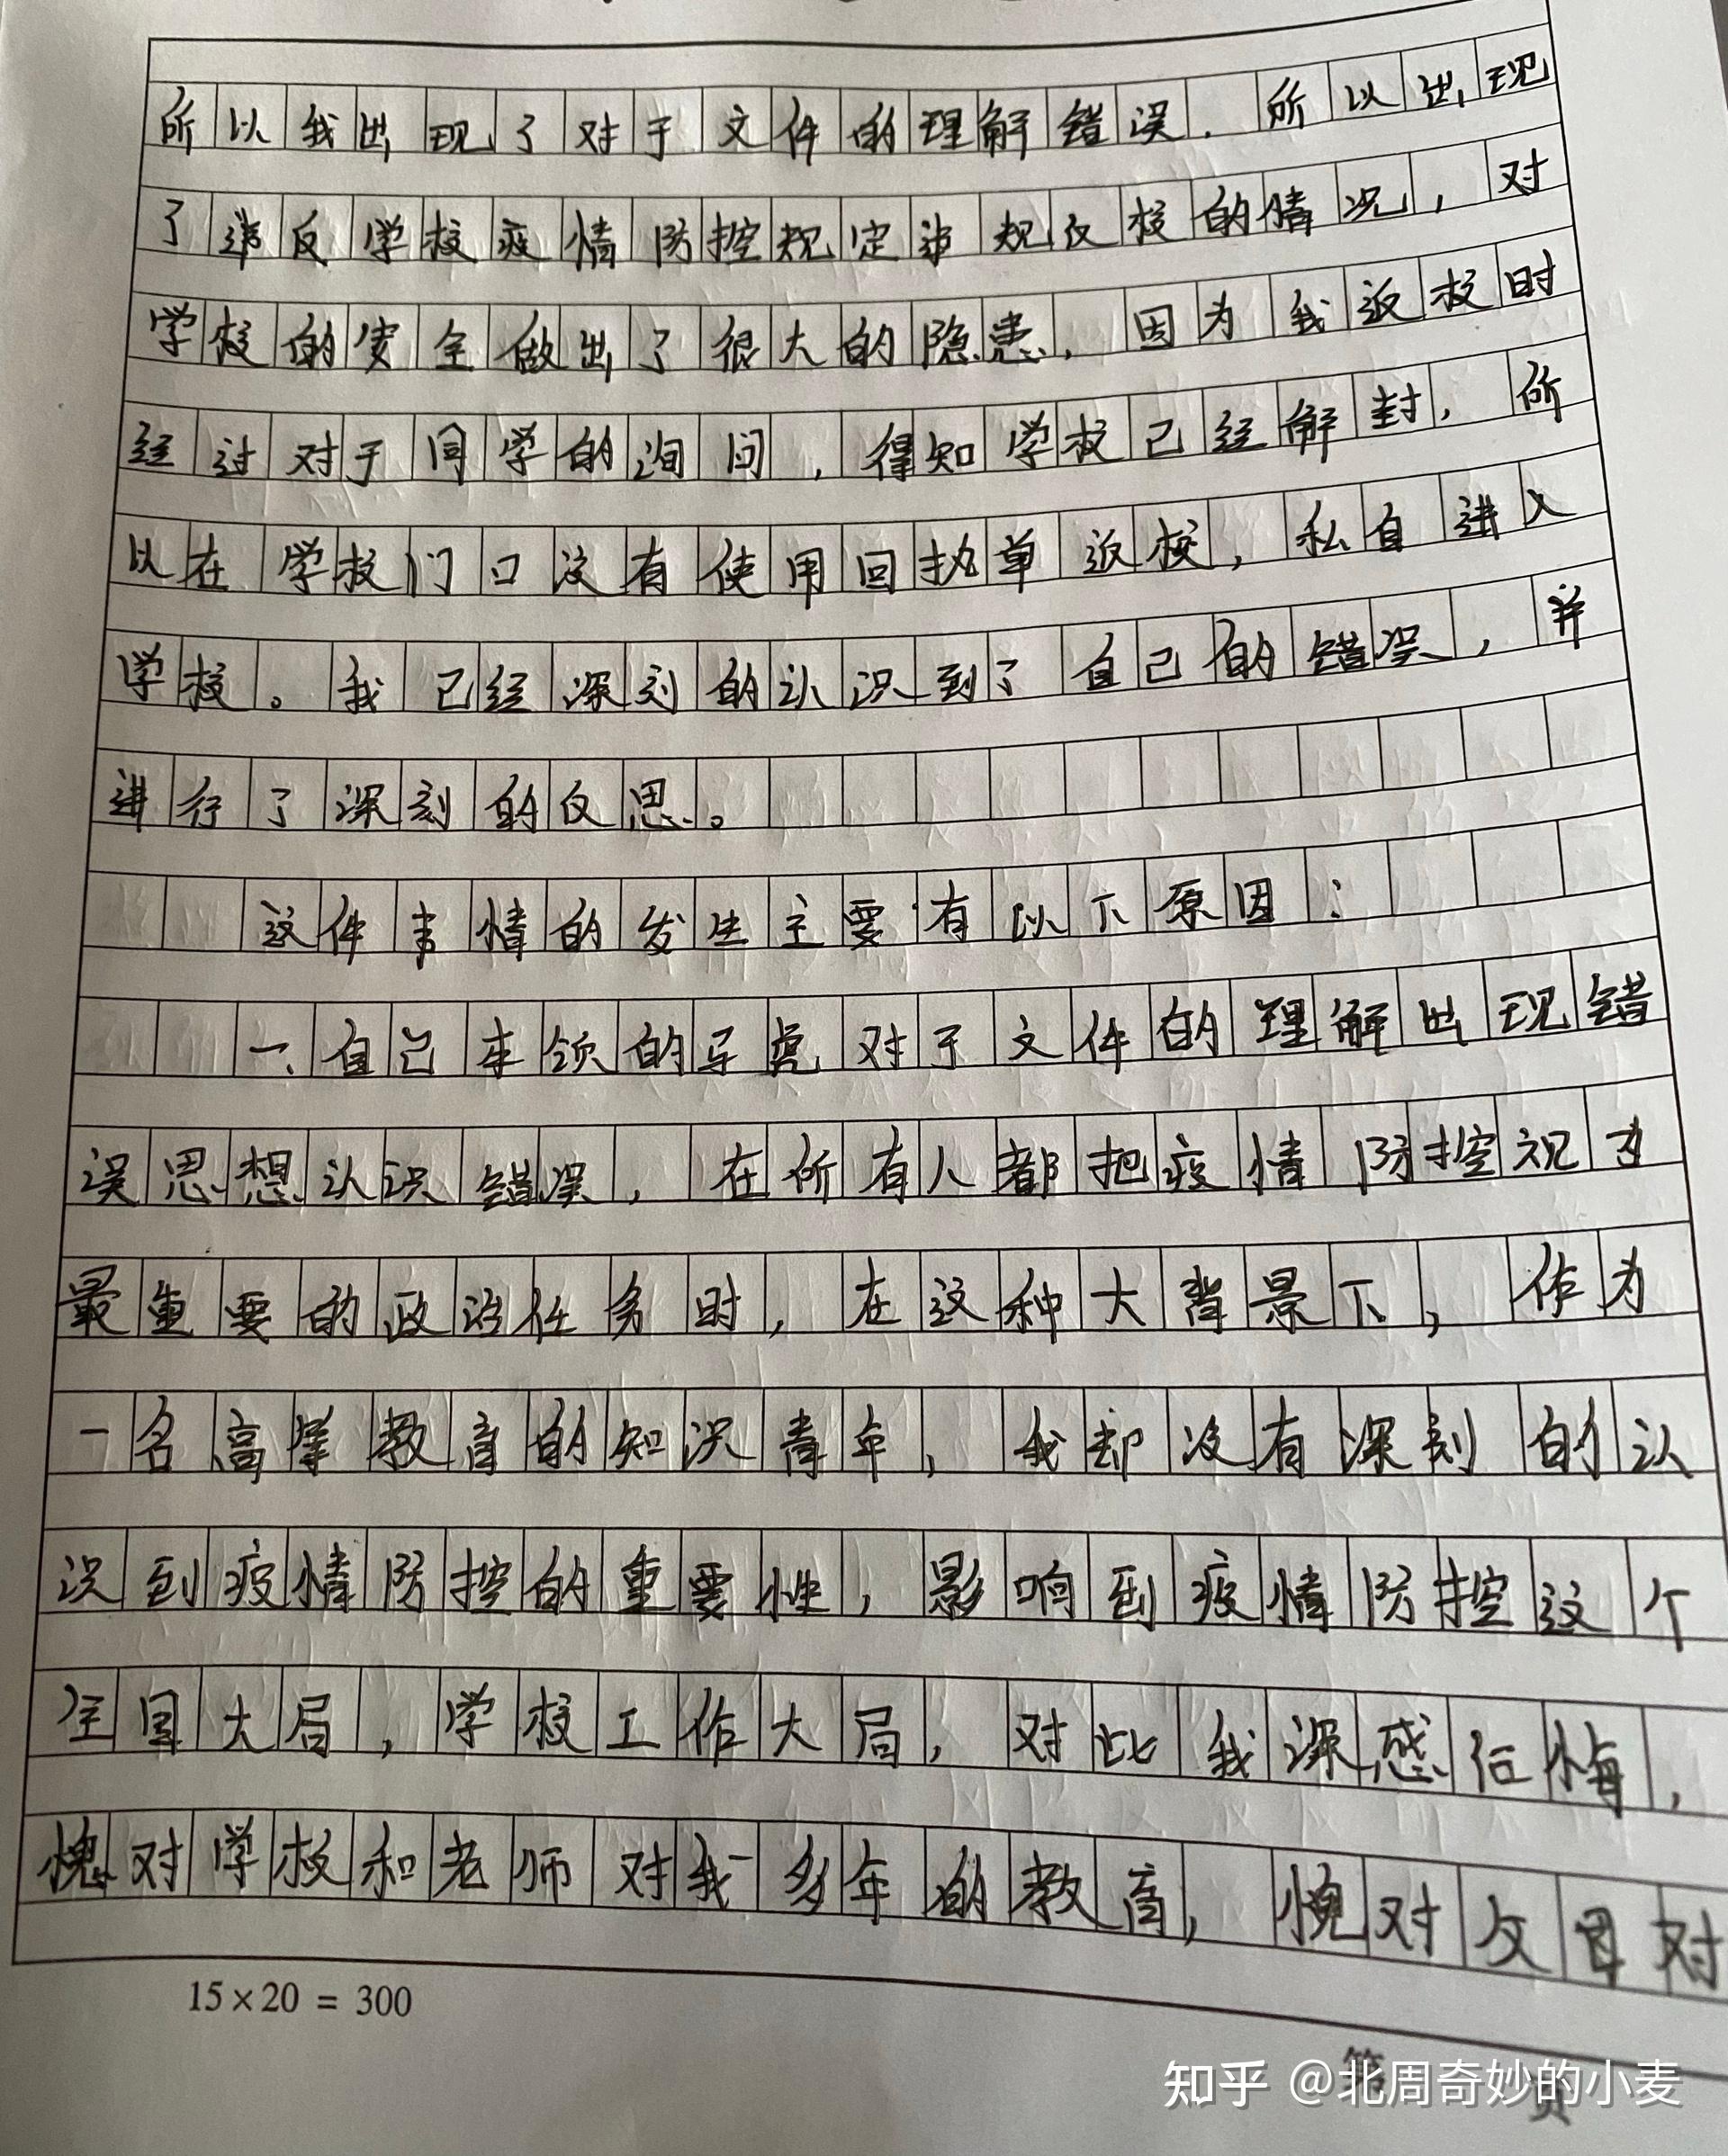 所以我出现了对于文件的理解错误．所以出现
了违反学校疫情防控规定违规仅校的情况，对
学校的安全做出了很大的隐患，因为我返校时
经过对于同学的询问，得知学校已经解封，所
以在学校门口没有使用回执单返校，私自进入
学校。我已经深刻的认识到了自己的错误，并
进行了深刻的反思。
这件事情的发生主要有以下原因：
一、自己本领的对于文件的理解出现错
误思想认识错误，在所有人都把疫情防控视为
最重要的政治任务时，在这种大背景下，作为
一名高等教育的知识青年，我却没有深刻的认
识到疫情防控的重要性，影响到疫情防控这个
全国大局，学校工作大局，对比我深感后悔，
愧对学校和老师对我多年的教育，愧对父母对
15×20 = 300
第 页
知乎 @北周奇妙的小麦